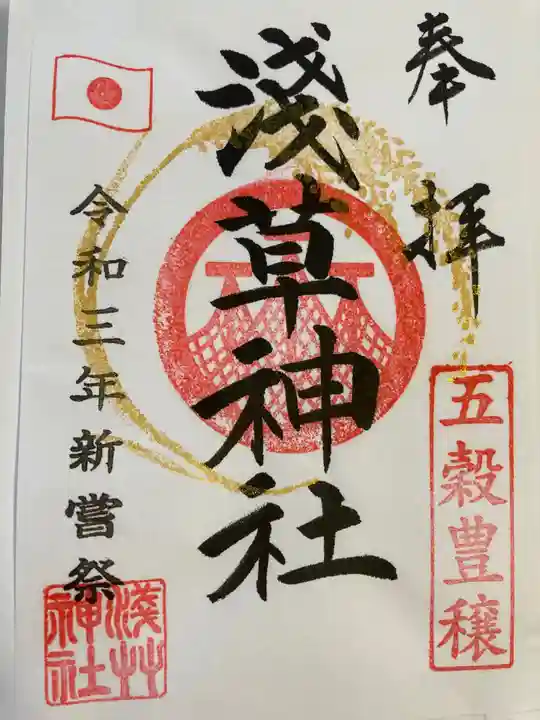 奉拝
五穀豊穣
淺草神社
令和三年新嘗祭
淺草
神社